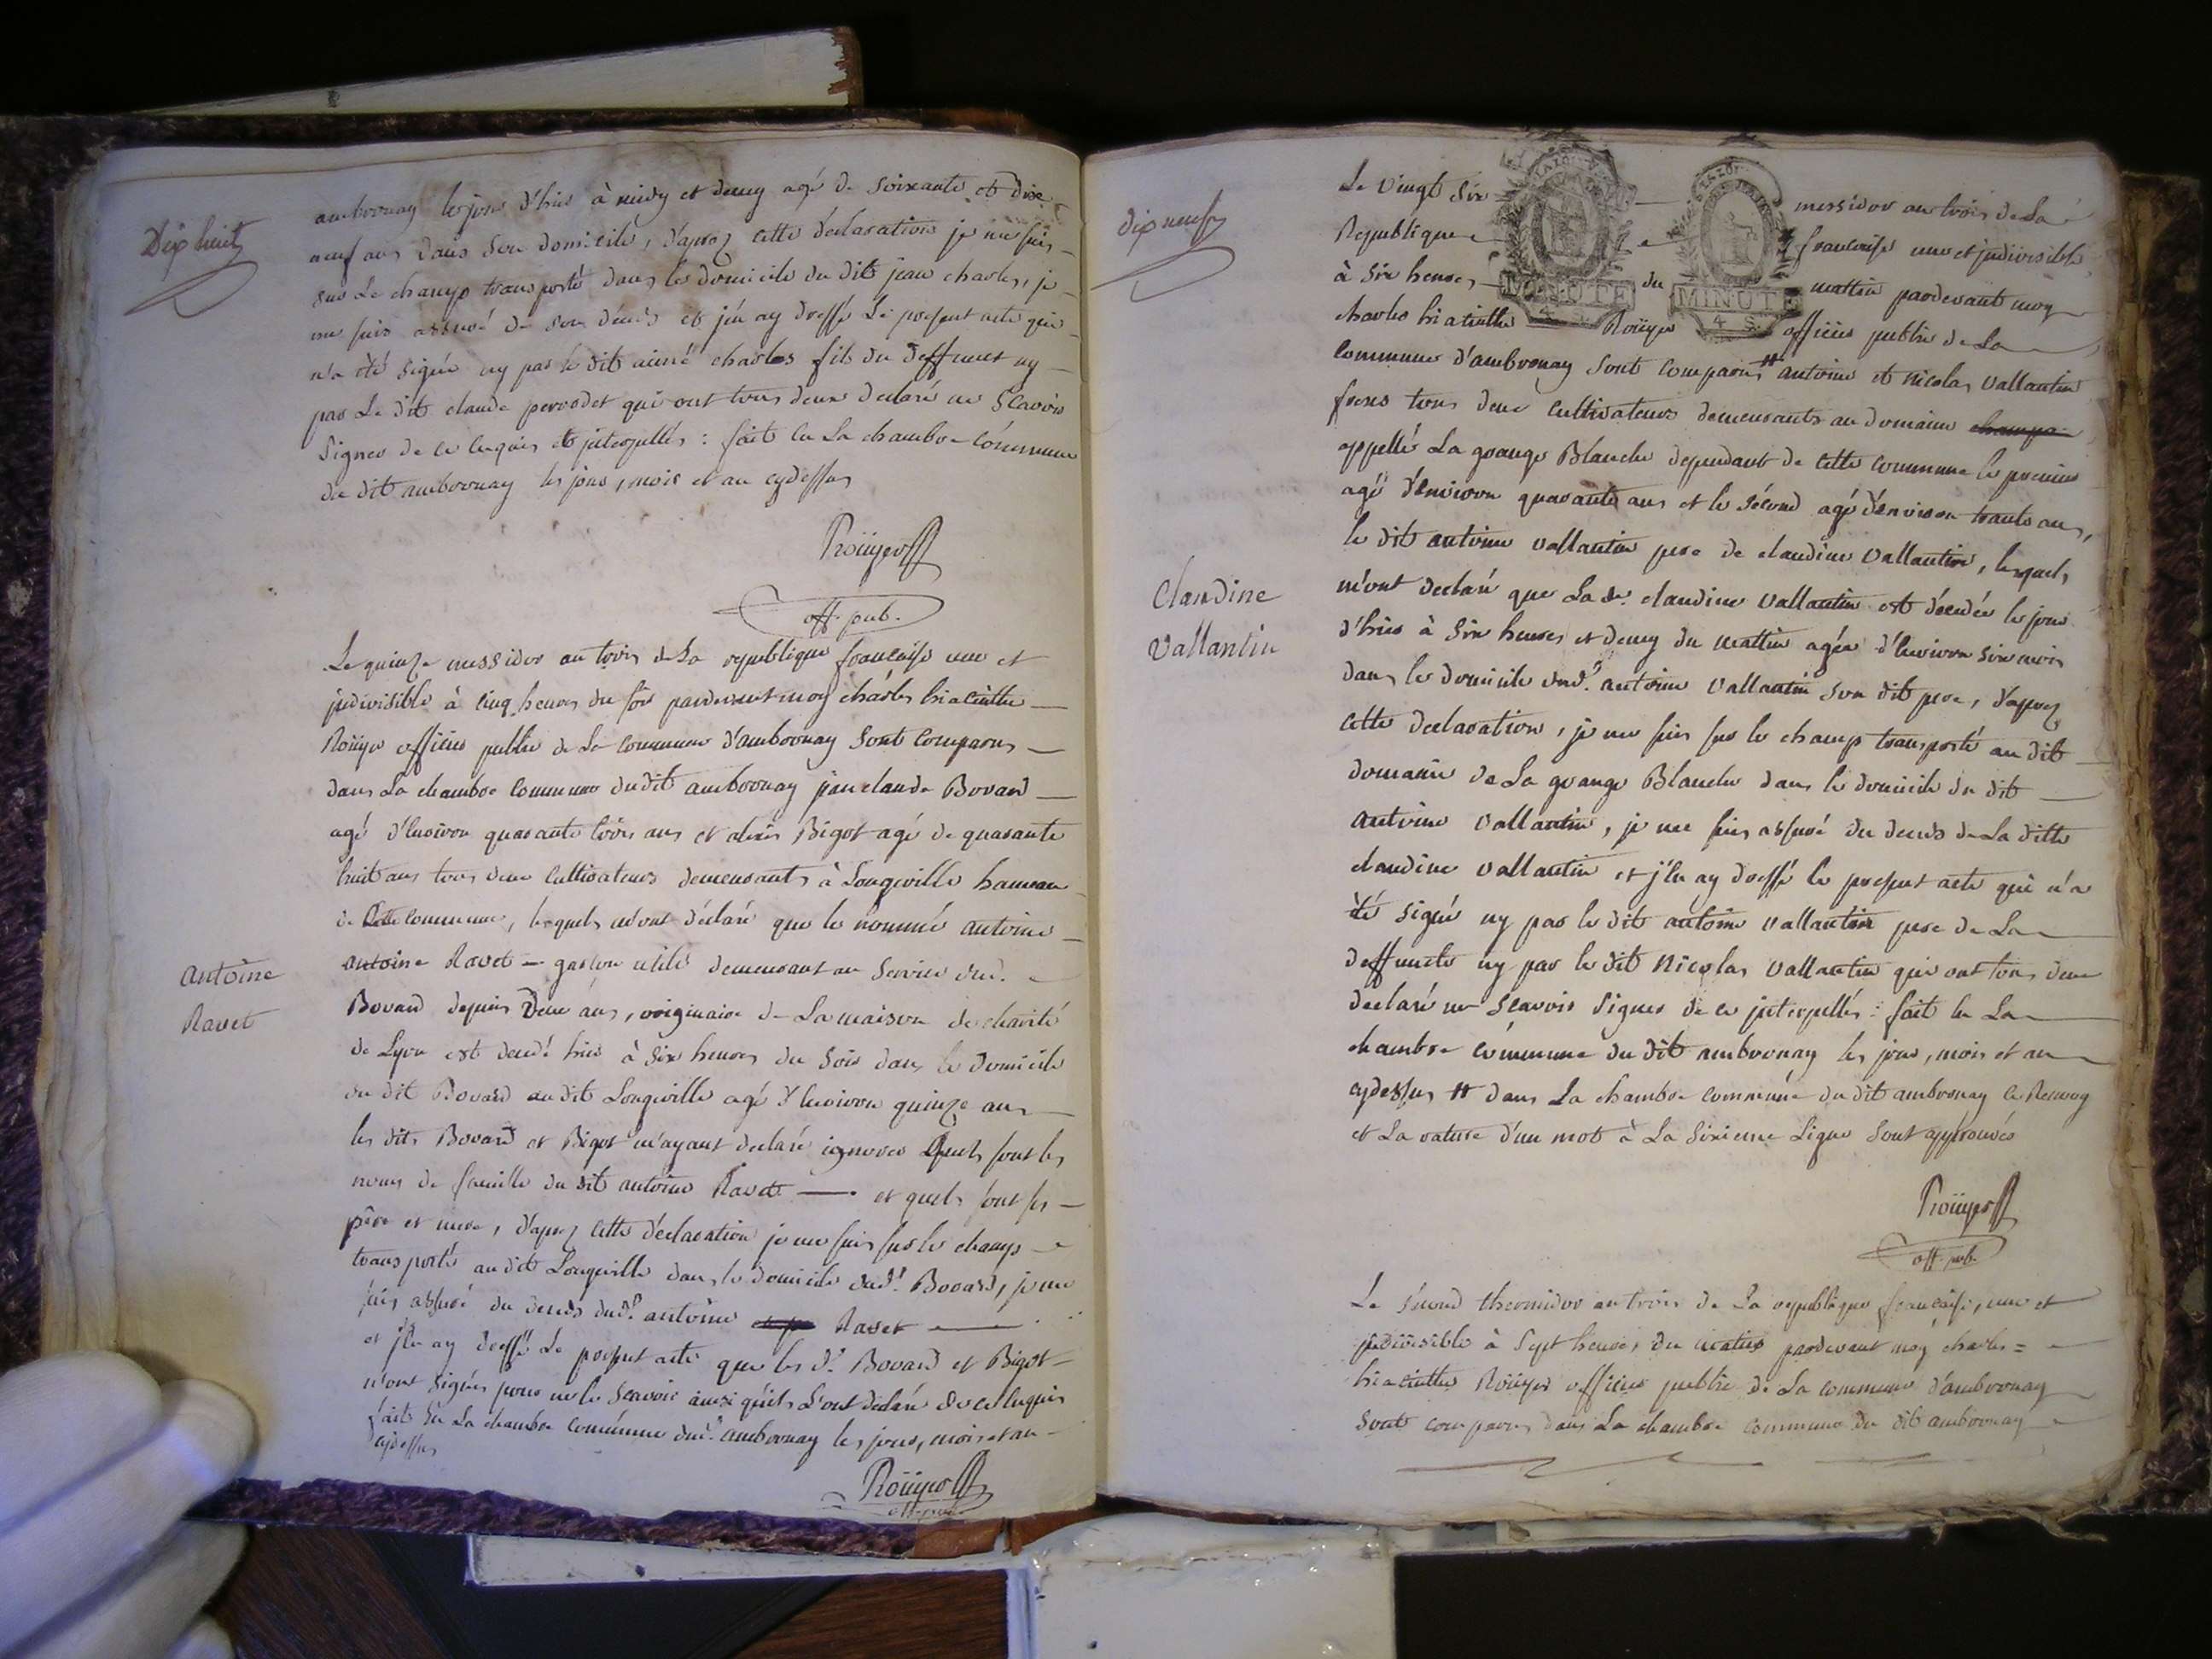 Dix huit
ambronay le jour d'hier à midy et demy agé de soixante et dix
neuf ans dans son domicile, d'aprez cette déclaration je me suis
sur Le champs transporté dans le domicile du dit jean charles, je
me suis assuré de son décès et j'en ay dressé Le present acte qui
n'a été signé ny par le dit aimé charles fils du deffunt ny
par Le dit claude perrodet qui ont tous deux declaré ne Scavoir
Signer de ce enquis et interpellés : fait en La chambre Commune
du dit ambronay les jour, mois et an cydessus
Roüyer
off. pub.
Le quinze messidor an trois de La republique francaise une et
indivisible à cinq heures du soir pardevant moy charles hiacinthe
Roüyer officier public de La commune d'ambronay Sont Comparus
dans La chambre Commune du dit ambronay jean claude Bovard
agé d'environ quarante trois ans et alexis Bigot agé de quarante
huit ans tous deux Cultivateurs demeurants à Longeville hameau
de Cette commune, lesquels m'ont déclaré que le nommé antoine
Antoine
Ravet
antoine Ravet garçon demeurant au Service dud.
Bovard depuis Deux ans, originaire de La maison de charité
de Lyon est decedé hier à six heures du Soir dans le Domicile
du dit Bovard au dit Longeville agé d'environ quinze ans
les dits Bovard et Bigot m'ayant declaré ignorer Quels sont les
noms de famille du dit antoine Ravet et quels sont ses
père et mere, d'aprez cette déclaration je me suis sur le champs
transporté au dit Longeville dans le domicile dud.t Bovard, je me
suis assuré du deces dud.t antoine Ravet
et j'en ay dressé Le present acte que les d.t Bovard et Bigot
n'ont signés pour ne le Scavoir ainsi qu'ils L'ont declaré de ce enquis
fait En La chambre Commune dud.t ambronay les jour, mois et an
cydessus
Roüyer
off. pub.
dix neuf
Le vingt six messidor an trois de La
Republique francaise une et indivisible
à six heures du mattin pardevant moy
MINUTE MINUTE
4 S. 4 S.
charles hiacinthe Roüyer officier public de La
commune d'ambronay Sont comparus # antoine et nicolas Vallantin
freres tous deux cultivateurs demeurants au domaine
appellé La grange Blanche dependant de cette commune le premier
agé d'environ quarante ans et le sécond agé d'environ trante ans,
le dit antoine vallantin pere de claudine Vallantin, lesquels
Claudine
Vallantin
m'ont declaré que La d.e claudine Vallantin est décédée le jour
d'hier à six heures et demy du mattin agée d'environ six mois
dans le domicile dud.t antoine Vallantin son dit pere, d'aprez
cette declaration, je me suis sur le champs transporté au dit
domaine de La grange Blanche dans le domicile du dit
antoine Vallantin, je me suis assuré du deces de La ditte
claudine vallantin et j'En ay dressé le present acte qui n'a
été signé ny par le dit antoine vallantin pere de La
deffuncte ny par le dit Nicolas Vallantin qui ont tous deux
declaré ne Scavoir Signer de ce interpellés : fait En La
chambre commune du dit ambronay les jour, mois et an
cydessus # dans La chambre commune du dit ambronay Le Renvoy
et La rature d'un mot à La sixieme Ligne Sont approuvés
Roüyer
off. pub.
Le second thermidor an trois de La republique francaise, une et
indivisible à Sept heures du matin pardevant moy charles =
hiacinthe Roüyer officier public de La commune d'ambronay
Sont comparus dans La chambre commune du dit ambronay